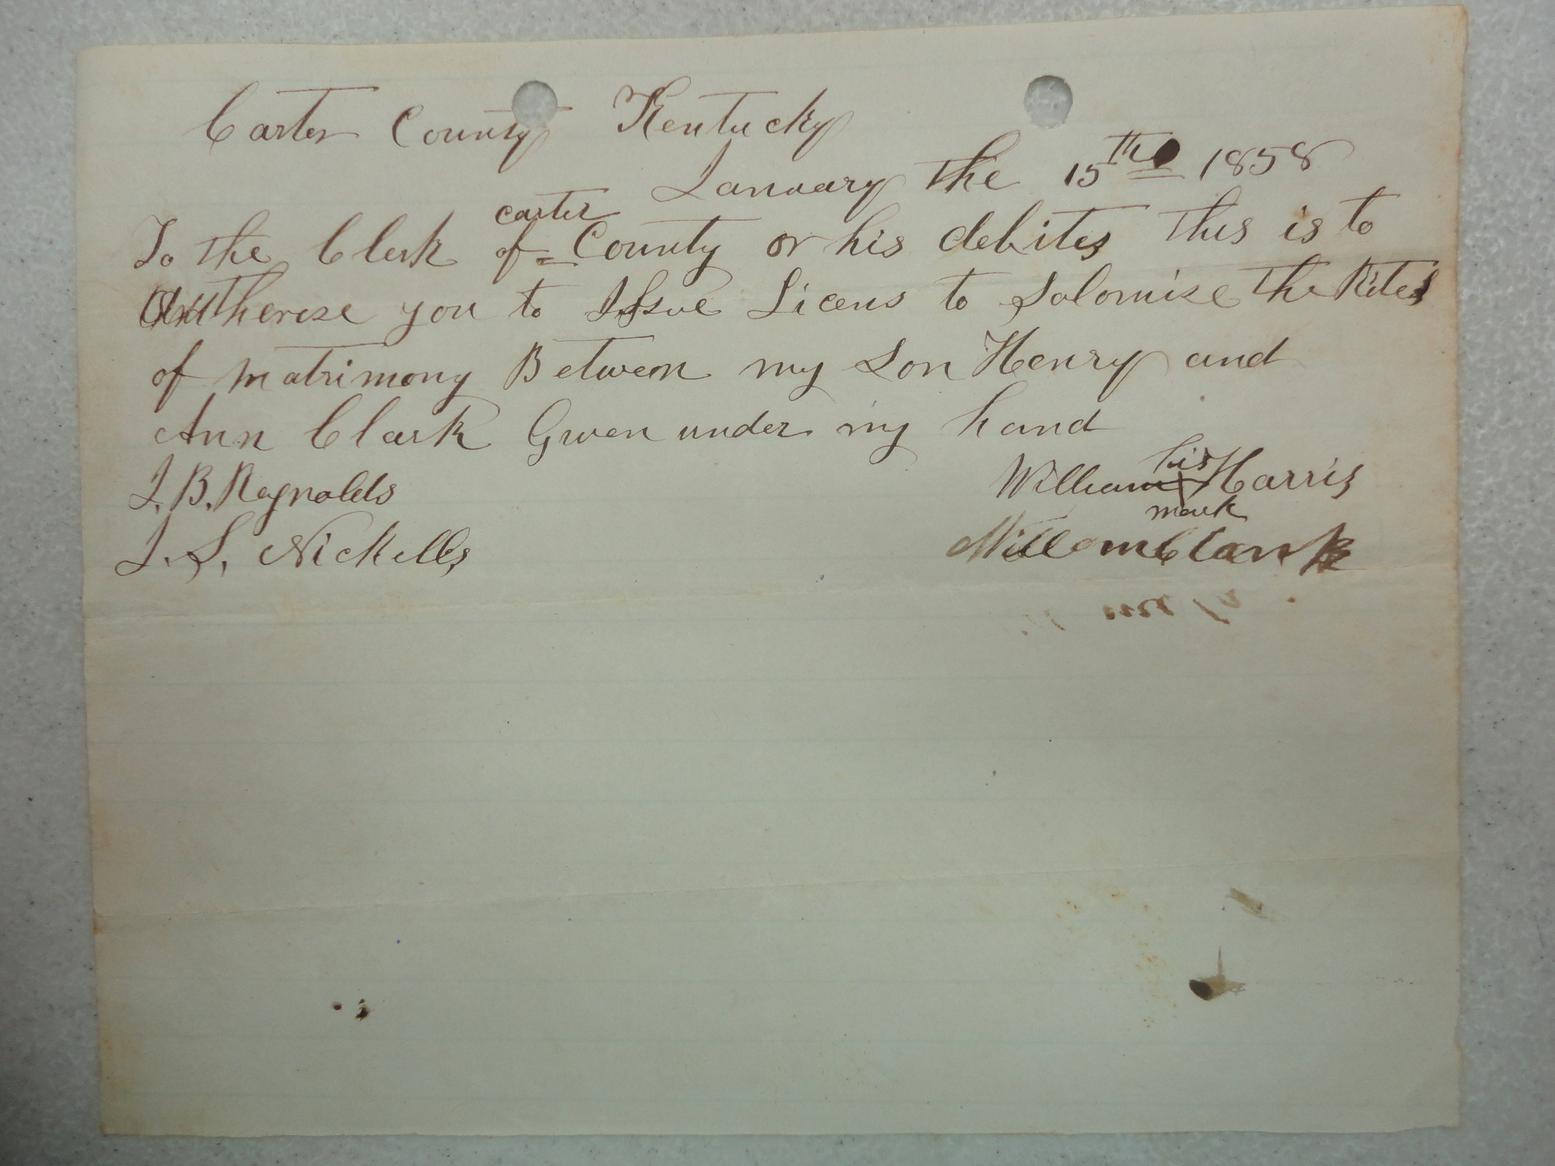 Carter County Kentucky
January the 15th 1858
carter
To the Clerk of = County or his debites this is to
Autherise you to Issue Licens to Solomise the Rites
of matrimony Between my Son Henry and
Ann Clark Given under my hand
his
J. B. Reynolds William X Harris
mark
J. S. Nickells Willam Clark